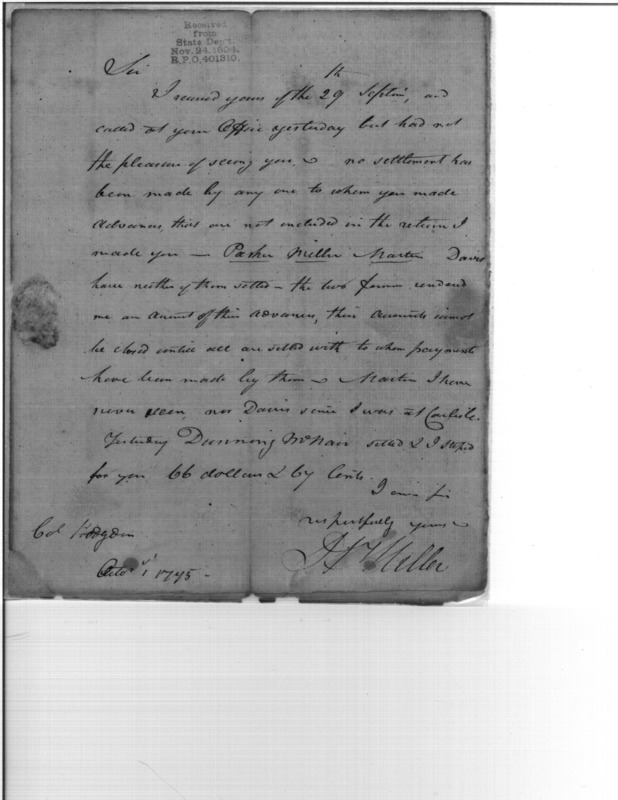 Received
from
State Dept.
Nov. 24. 1894.
R.P.O. 401310.
Sir
I received yours of the 29th Septem, and
called at your Office yesterday but had not
the pleasure of seeing you, no settlement has
been made by any one to whom you made
Advances, that are not included in the return I
made you — Parker Miller Martin Davis
have neither of them settled — the two former rendered
me an account of their advances, their accounts cannot
be closed untill all are settled with to whom payments
have been made by them — Martin I have
never seen, nor Davis since I was at Carlisle.
Yesterday Dunning McNair settled & I stoped
for you 66 dollars & 67 Cents.
I am sir
respectfully yours
Col Hodgdon
Miller
Octo 1 1795 -